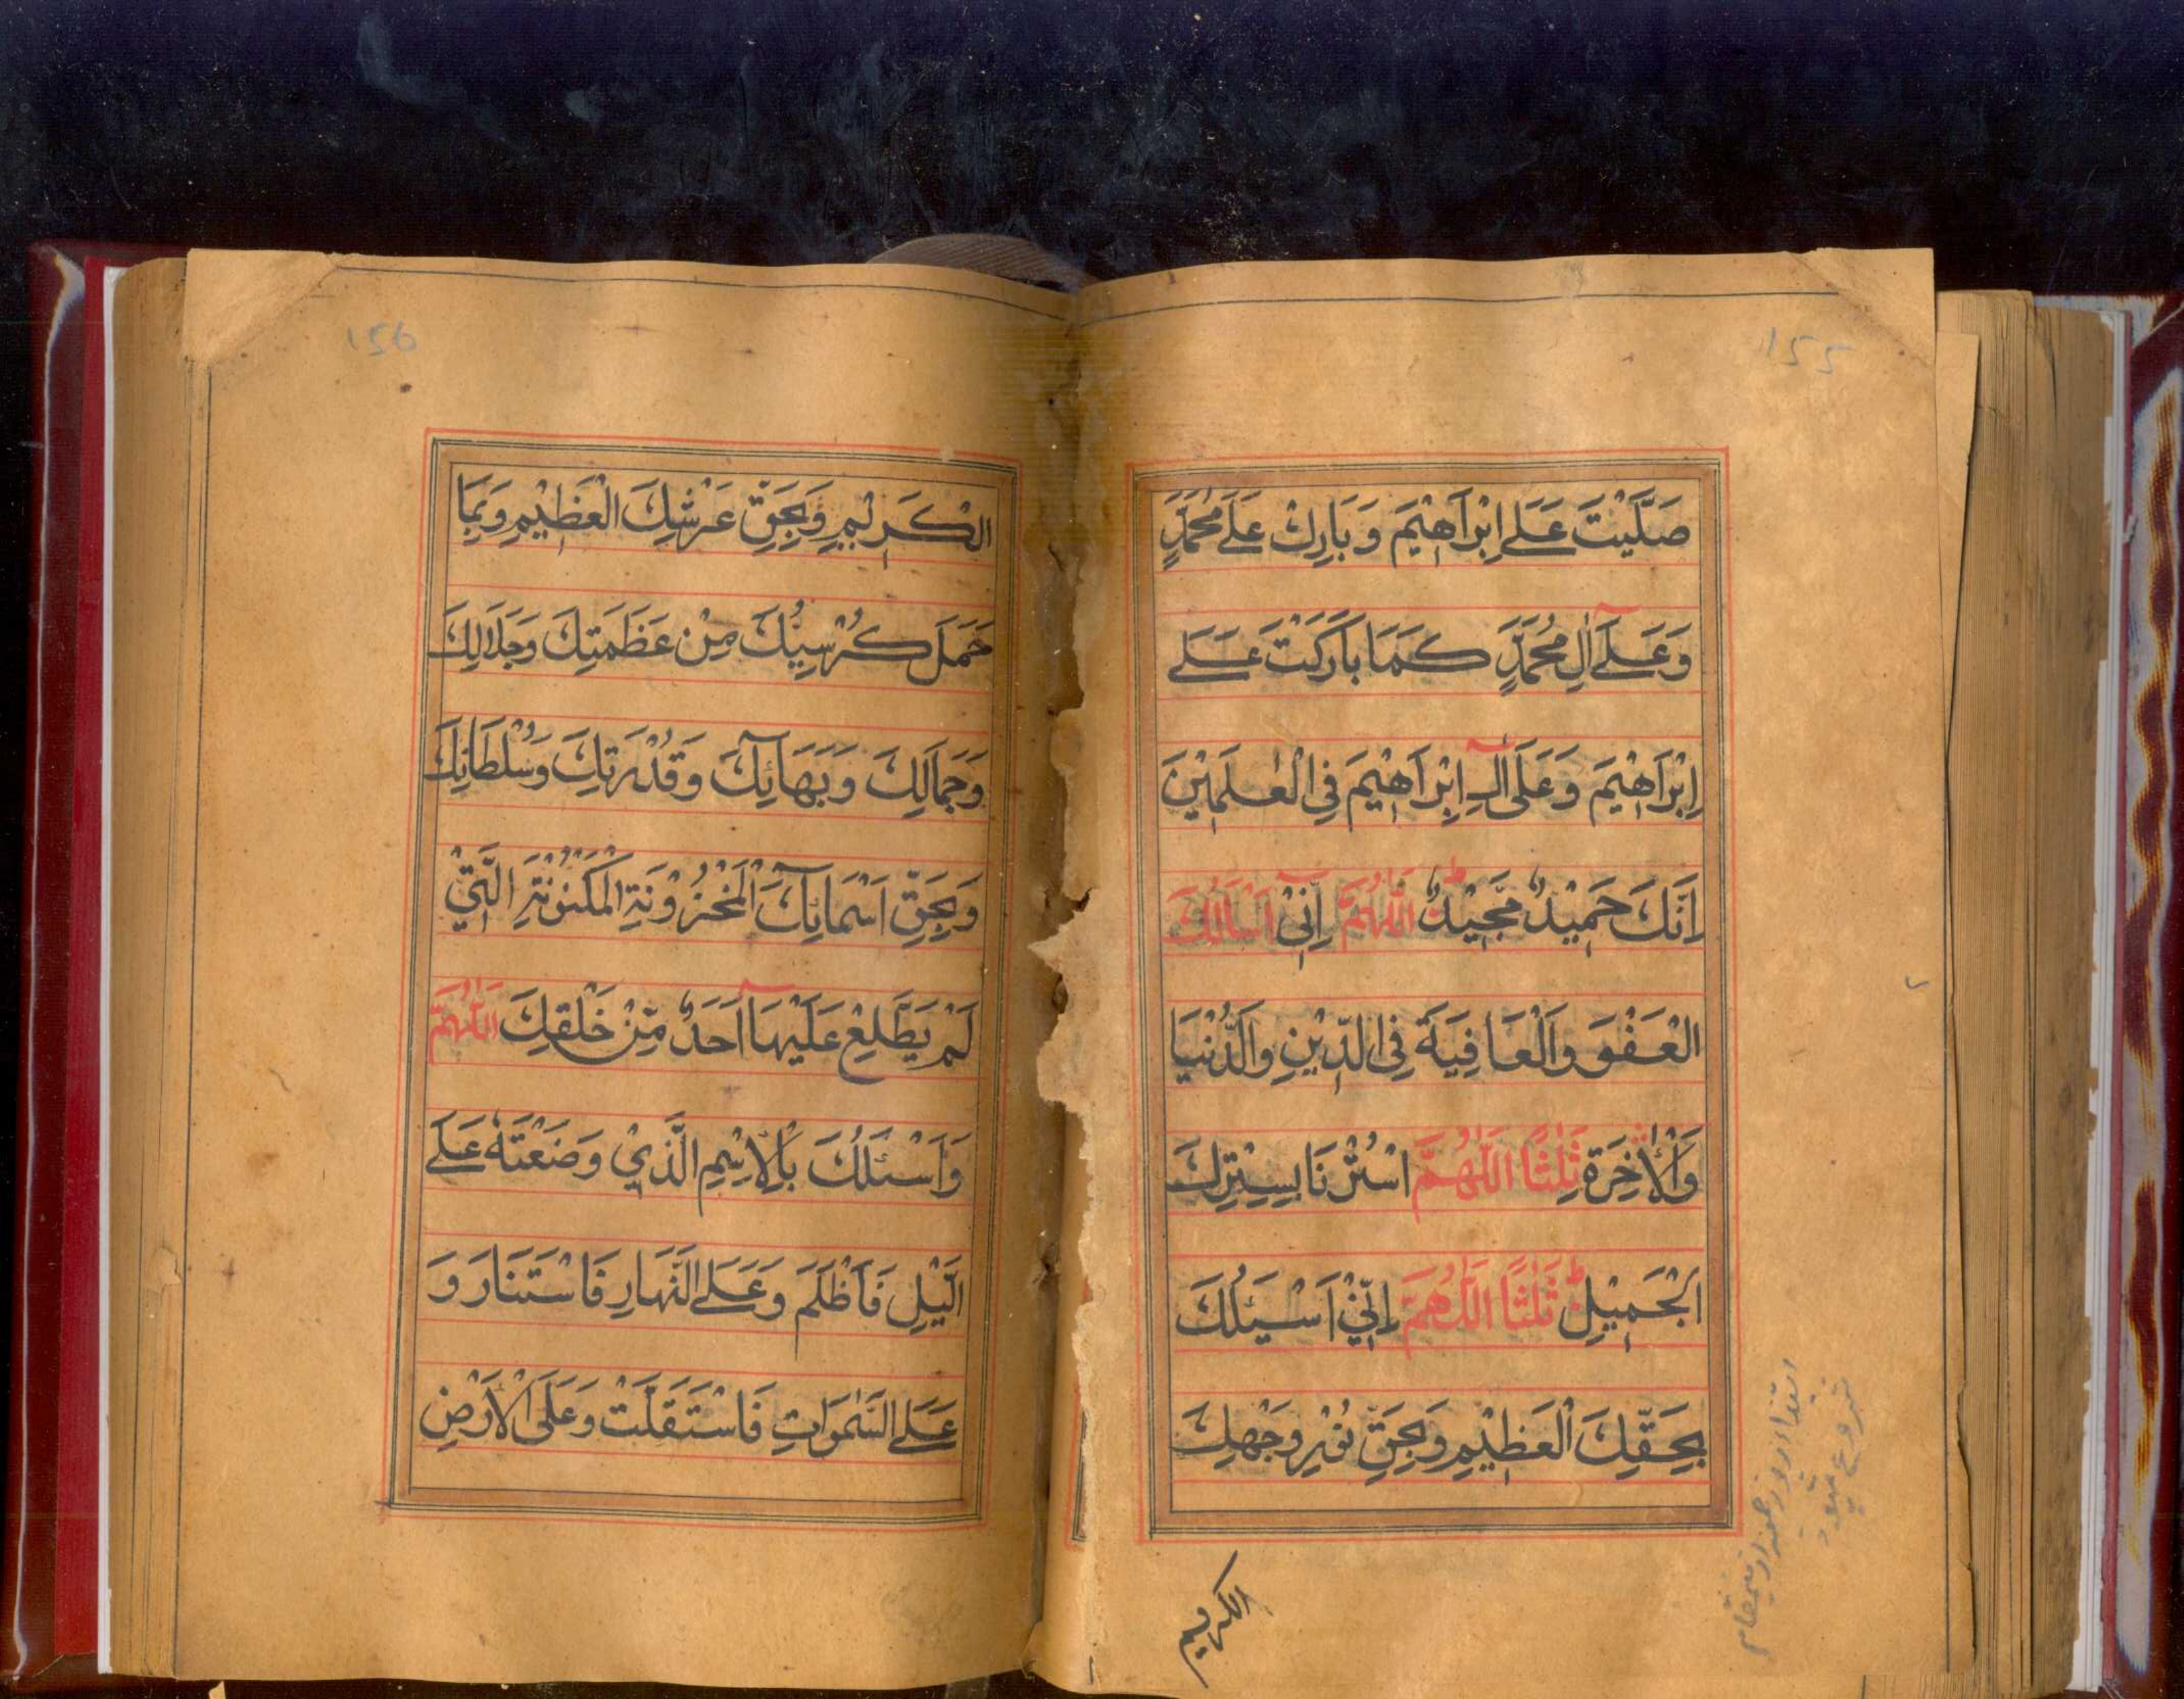 155
صَلَّيْتَ عَلَى اِبْرَاهِيْمَ وَ بَارِكْ عَلَى مُحَمَّدٍ
وَعَلَى آلِ مُحَمَّدٍ كَمَا بَارَكْتَ عَلَى
اِبْرَاهِيْمَ وَعَلَى آلِ اِبْرَاهِيْمَ فِي الْعٰلَمِيْنَ
اِنَّكَ حَمِيْدٌ مَّجِيْدٌ ط اَللّٰهُمَّ اِنِّيْ اَسْاَلُكَ
الْعَفْوَ وَالْعَافِيَةَ فِي الدِّيْنِ وَالدُّنْيَا
وَالْاٰخِرَةِ ثَلٰثًا اَللّٰهُمَّ اسْتُرْنَا بِسِتْرِكَ
الْجَمِيْلِ ط ثَلٰثًا اَللّٰهُمَّ اِنِّيْ اَسْئَلُكَ
بِحَقِّكَ الْعَظِيْمِ وَبِحَقِّ نُوْرِ وَجْهِكَ
الكريم
156
الْكَرِيْمِ وَبِحَقِّ عَرْشِكَ الْعَظِيْمِ وَبِمَا
حَمَلَ كُرْسِيُّكَ مِنْ عَظَمَتِكَ وَجَلَالِكَ
وَجَمَالِكَ وَبَهَائِكَ وَقُدْرَتِكَ وَسُلْطَانِكَ
وَبِحَقِّ اَسْمَائِكَ الْمَخْزُوْنَةِ الْمَكْنُوْنَةِ الَّتِيْ
لَمْ يَطَّلِعْ عَلَيْهَا اَحَدٌ مِّنْ خَلْقِكَ اَللّٰهُمَّ
وَاَسْئَلُكَ بِالْاِسْمِ الَّذِيْ وَضَعْتَهٗ عَلَى
الَّيْلِ فَاَظْلَمَ وَعَلَى النَّهَارِ فَاسْتَنَارَ وَ
عَلَى السَّمٰوَاتِ فَاسْتَقَلَّتْ وَعَلَى الْاَرْضِ